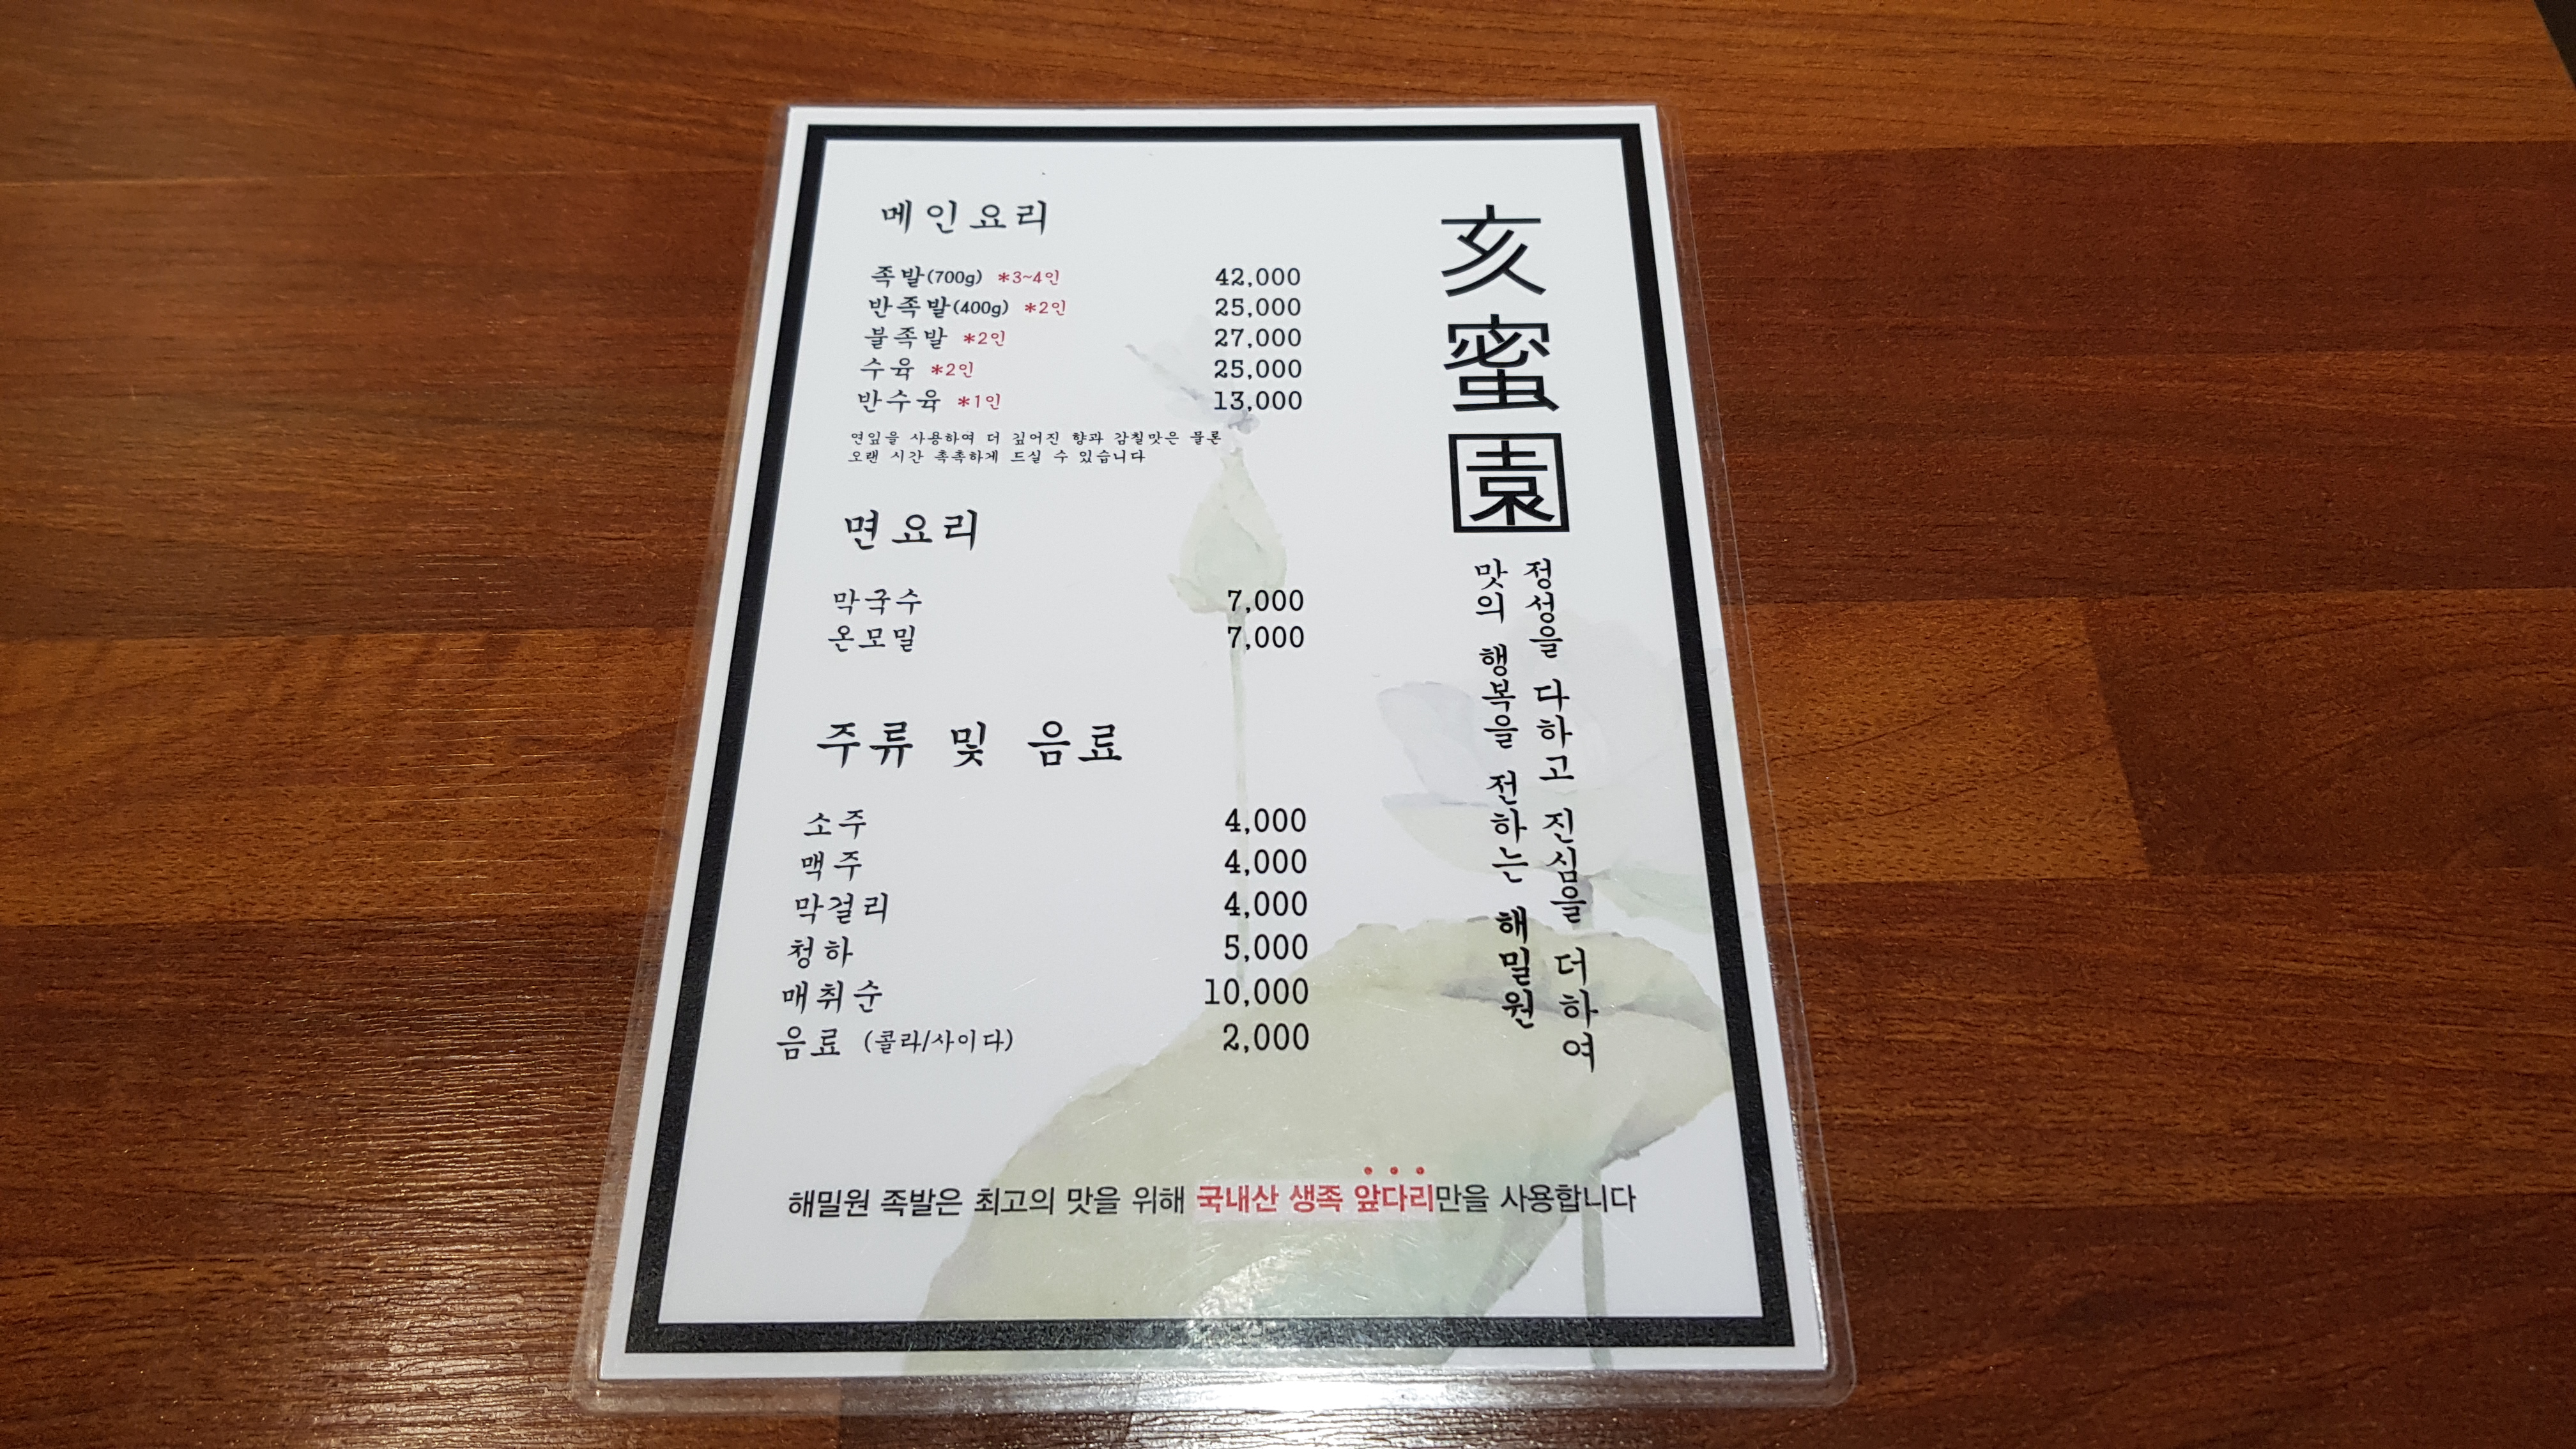 메인요리
족발(700g) *3~4인 42,000
반족발(400g) *2인 25,000
불족발 *2인 27,000
수육 *2인 25,000
반수육 *1인 13,000
연잎을 사용하여 더 깊어진 향과 감칠맛은 물론
오랜 시간 촉촉하게 드실 수 있습니다
면요리
막국수 7,000
온모밀 7,000
주류 및 음료
소주 4,000
맥주 4,000
막걸리 4,000
청하 5,000
매취순 10,000
음료 (콜라/사이다) 2,000
亥蜜園
정성을 다하고 진심을 더하여
맛의 행복을 전하는 해밀원
해밀원 족발은 최고의 맛을 위해 국내산 생족 앞다리만을 사용합니다